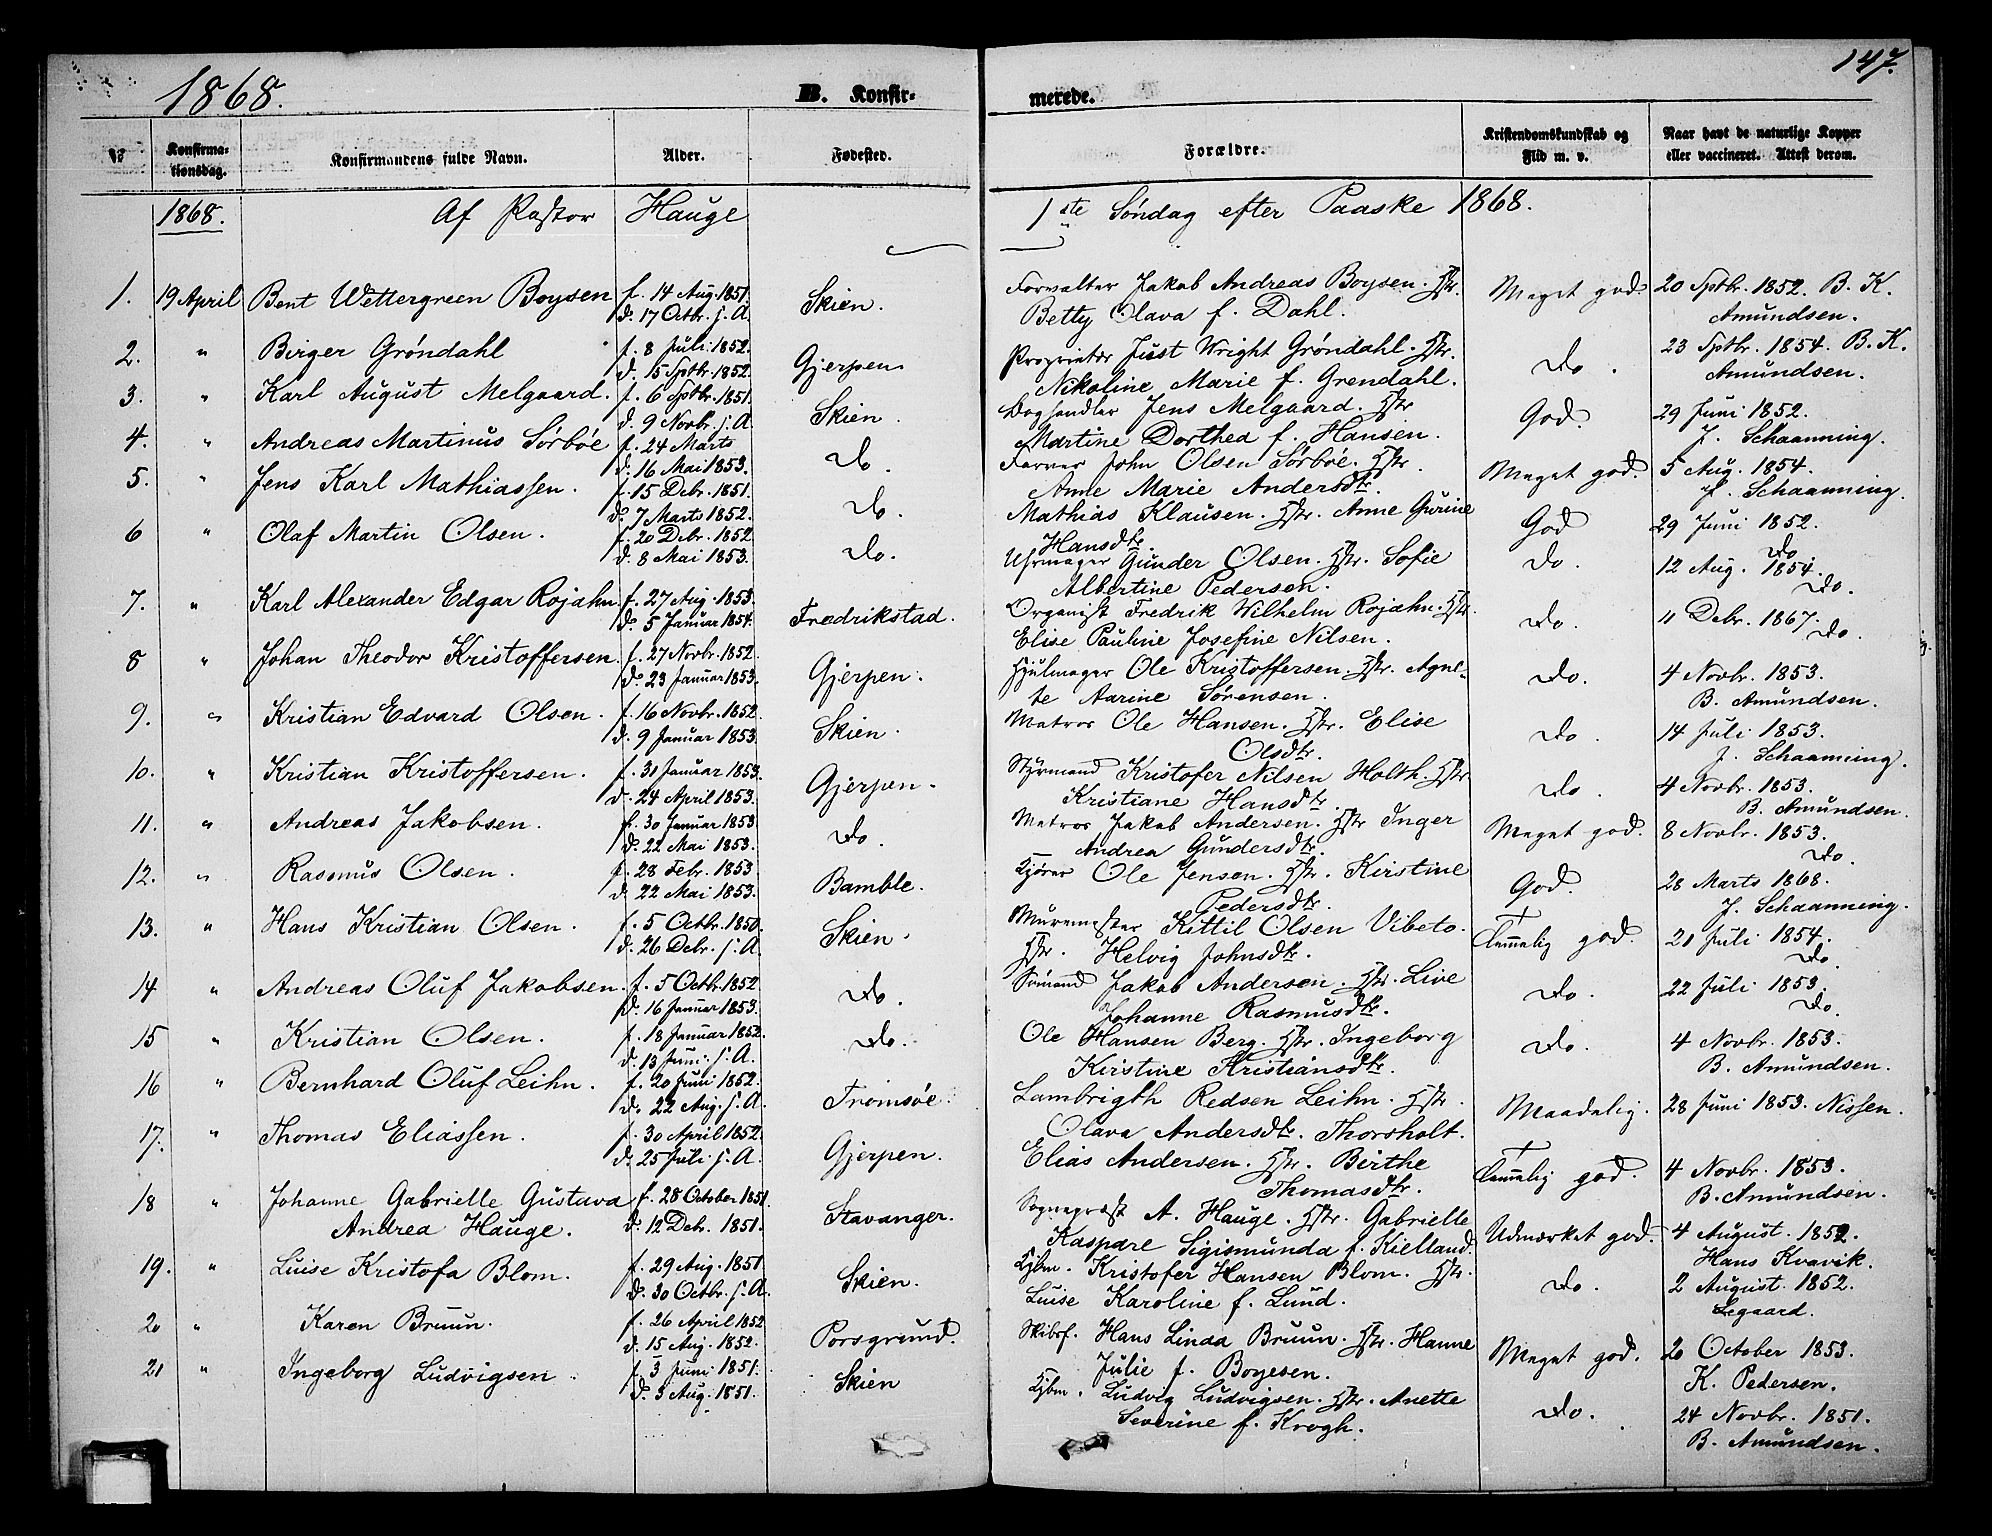 1868.
B. Konfir-
merede.
147.
№
Konfirma-
tionsdag.
Konfirmandens fulde Navn.
Alder.
Fødested.
Forældre.
Kristendomskundskab og
Flid m. v.
Naar havt de naturlige Kopper
eller vaccineret. Attest derom.
1868. Af Pastor Hauge 1ste Søndag efter Paaske 1868.
1. 19 April Bent Wettergreen Boysen f. 14 Aug. 1851. Skien. Forvalter Jakob Andreas Boysen. Hstr. Meget god. 20 Sptbr. 1852. B. K.
d. 17 Octbr. s. A. Betty Olava f. Dahl. Amundsen.
2. " Birger Gröndahl f. 8 Juli 1852. Gjerpen Proprietær Just Wright Gröndahl. Hstr. Do. 23 Sptbr. 1854. B. K.
d. 15 Sptbr. 1852. Nikoline Marie f. Grendahl. Amundsen.
3. " Karl August Melgaard. f. 6 Sptbr. 1851. Skien. Boghandler Jens Melgaard. Hstr God. 29 Juni 1852.
d. 9 Novbr. s. A. Martine Dorthea f. Hansen. J. Schaanning.
4. " Andreas Martinus Sörböe f. 24 Marts Do. Farver John Olsen Sörböe. Hstr. Meget god. 5 Aug. 1854.
d. 16 Mai 1853. Anne Marie Andersdtr. J. Schaanning.
5. " Jens Karl Mathiassen. f. 15 Debr. 1851. Do. Mathias Klausen. Hstr. Anne Gurine God 29 Juni 1852.
d. 7 Marts 1852. Hansdtr. Do
6 " Olaf Martin Olsen. f. 20 Debr. 1852 Do. Uhrmager Gunder Olsen. Hstr. Sofie Do. 12 Aug. 1854.
d. 8 Mai 1853. Albertine Pedersen. Do.
7. " Karl Alexander Edgar Rojahn f. 27 Aug. 1853. Fredrikstad. Organist Fredrik Wilhelm Rojahn. Hstr. Do. 11 Debr. 1867.
d. 5 Januar 1854. Elise Pauline Josefine Nilsen. Do.
8 " Johan Theodor Kristoffersen f. 27 Novbr. 1852. Gjerpen. Hjulmager Ole Kristoffersen. Hstr. Agne- Do. 4 Novbr. 1853.
d. 23 Januar 1853. te Karine Sörensen. B. Amundsen.
9. " Kristian Edvard Olsen. f. 16 Novbr. 1852. Skien. Matros Ole Hansen. Hstr. Elise Do. 14 Juli 1853.
d. 9 Januar 1853. Olsdtr. J. Schaanning.
10. " Kristian Kristoffersen. f. 30 Januar 1853. Gjerpen. Styrmand Kristofer Nilsen Holth. Hstr Do. 4 Novbr. 1853.
d. 24 April 1853. Kristiane Hansdtr. B. Amundsen.
11. " Andreas Jakobsen. f. 30 Januar 1853 Do. Matros Jakob Andersen. Hstr Inger Meget god. 8 Novbr. 1853.
d. 22 Mai 1853. Andrea Gundersdtr. Do.
12. " Rasmus Olsen. f. 28 Febr. 1853 Bamble. Kjörer Ole Jensen. Hstr. Kirstine God. 28 Marts 1868.
d. 22 Mai 1853. Pedersdtr. J. Schaanning.
13. " Hans Kristian Olsen. f. 5 Octbr. 1850. Skien. Murermester Kittil Olsen Vibeto. Temmelig god. 21 Juli 1854.
d. 26 Debr. s. A. Hstr. Helvig Johnsdtr. Do.
14 " Andreas Oluf Jakobsen. f. 5 Octbr. 1852 Do. Sömand Jakob Andersen. Hstr. Live Do. 22 Juli 1853.
d. 16 Januar 1853. Johanne Rasmusdtr. Do.
15 " Kristian Olsen. f. 18 Januar 1852. Do. Ole Hansen Berg. Hstr. Ingeborg Do. 4 Novbr. 1853.
d. 13 Juni s. A. Kirstine Kristiansdtr. B. Amundsen.
16 " Bernhard Oluf Leihn. f. 20 Juni 1852. Tromsöe. Lambrigth Redsen Leihn. Hstr. Maadelig. 28 Juni 1853. Nissen.
d. 22 Aug. s. A. Olava Andersdtr. Thorsholt.
17. " Thomas Eliassen. f. 30 April 1852. Gjerpen. Elias Andersen. Hstr. Birthe Temmelig god. 4 Novbr. 1853.
d. 25 Juli s. A. Thomasdtr. B. Amundsen.
18 " Johanne Gabrielle Gustava f. 28 October 1851 Stavanger. Sognepræst A. Hauge. Hstr. Gabrielle Udmærket god. 4 August. 1852.
Andrea Hauge. d. 12 Debr. 1851. Kaspare Sigismunda f. Kielland. Hans Kvavik.
19. " Luise Kristofa Blom. f. 29 Aug. 1851 Skien. Kjbm. Kristofer Hansen Blom. Hstr. Do. 2 August. 1852.
d. 30 Octbr. s. A. Luise Karoline f. Lund. Legaard.
20 " Karen Bruun. f. 26 April 1852 Porsgrund. Skibsf. Hans Linda Bruun. Hstr. Hanne Meget god. 20 October 1853.
d. 15 Aug. 1852. Julie f. Boyesen. K. Pedersen.
21 " Ingeborg Ludvigsen f. 3 Juni 1851. Skien Kjbm. Ludvig Ludvigsen. Hstr. Anette Do. 24 Novbr. 1851.
d. 3 Aug. 1851. Severine f. Krogh. B. Amundsen.